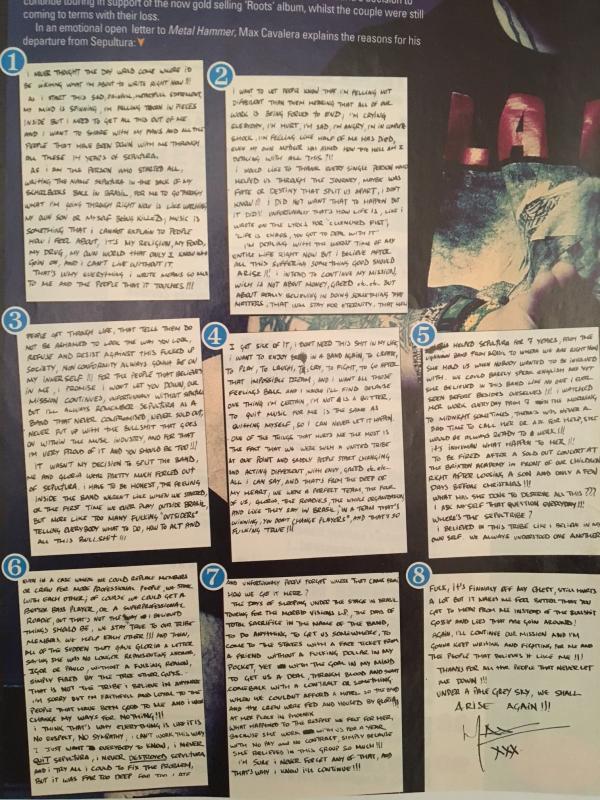 continue touring in support of the now gold selling 'Roots' album, whilst the couple were still
coming to terms with their loss.
In an emotional open letter to Metal Hammer, Max Cavalera explains the reasons for his
departure from Sepultura:
1
I NEVER THOUGHT THE DAY WOULD COME WHERE I'D
BE WRITING WHAT I'M ABOUT TO WRITE RIGHT NOW!!!
AS I START THIS SAD, PAINFUL, STATEMENT,
MY MIND IS SPINNING, I'M FEELING TORN IN PIECES
INSIDE BUT I NEED TO GET ALL THIS OUT OF ME
AND I WANT TO SHARE WITH MY FANS AND ALL THE
PEOPLE THAT HAVE BEEN DOWN WITH ME THROUGH
ALL THESE 14 YEAR'S OF SEPULTURA.
AS I AM THE PERSON WHO STARTED ALL,
WRITING THE NAME SEPULTURA IN THE BACK OF MY
SCHOOLBOOKS BACK IN BRASIL, FOR ME TO GO THROUGH
WHAT I'M GOING THROUGH RIGHT NOW IS LIKE WATCHING
MY OWN SON OR MYSELF BEING KILLED, MUSIC IS
SOMETHING THAT I CANNOT EXPLAIN TO PEOPLE
HOW I FEEL ABOUT, IT'S MY RELIGION, MY FOOD,
MY DRUG, MY OWN WORLD THAT ONLY I KNOW WHAT
GOIN ON, AND I CAN'T LIVE WITHOUT IT.
THAT'S WHY EVERYTHING I WRITE MEANS SO MUCH
TO ME AND THE PEOPLE THAT IT TOUCHES!!!
2
I WANT TO LET PEOPLE KNOW THAT I'M FELLING NOT
DIFFERENT THAN THEM MEANING THAT ALL OF OUR
WORK IS BEING FORCED TO END; I'M CRYING
EVERYDAY, I'M HURT, I'M SAD, I'M ANGRY, I'M IN COMPLETE
SHOCK, I'M FELLING LIKE HALF OF ME HAS DIED,
EVEN MY OWN MOTHER HAS ASKED HOW THE HELL AM I
DEALING WITH ALL THIS!!!
I WOULD LIKE TO THANK EVERY SINGLE PERSON WHO
HELPED US THROUGH THE JOURNEY, MAYBE WAS
FATE OR DESTINY THAT SPLIT US APART, I DON'T
KNOW!!! I DID NOT WANT THAT TO HAPPEN BUT
IT DID!! UNFORTUNATELY THAT'S HOW LIFE IS, LIKE I
WROTE ON THE LYRICS FOR "CLENCHED FIST",
"LIFE IS CHAOS, YOU GOT TO DEAL WITH IT"
I'M DEALING WITH THE WORST TIME OF MY
ENTIRE LIFE RIGHT NOW BUT I BELIEVE AFTER
ALL THIS SUFFERING SOMETHING GOOD SHOULD
ARISE!! I INTEND TO CONTINUE MY MISSION,
WICH IS NOT ABOUT MONEY, GREED etc. etc. BUT
ABOUT REALLY BELIEVING IN DOING SOMETHING THAT
MATTERS, THAT WILL STAY FOR ETERNITY, THAT HELP
3
PEOPLE GET THROUGH LIFE, THAT TELLS THEM DO
NOT BE ASHAMED TO LOOK THE WAY YOU LOOK,
REFUSE AND RESIST AGAINST THIS FUCKED UP
SOCIETY, NON CONFORMITY ALWAYS GONNA BE ON
MY INNER SELF!!! FOR THE PEOPLE THAT BELIEVES
IN ME, I PROMISE I WON'T LET YOU DOWN, OUR
MISSION CONTINUES, UNFORTUNATELY WITHOUT SEPULTURA
BUT I'LL ALWAYS REMEMBER SEPULTURA AS A
BAND THAT NEVER COMPROMISED, NEVER SOLD OUT,
NEVER PUT UP WITH THE BULLSHIT THAT GOES
ON WITHIN THE MUSIC INDUSTRY, AND FOR THAT
I'M VERY PROUD OF IT AND YOU SHOULD BE TOO!!!
IT WASN'T MY DECISION TO SPLIT THE BAND,
ME AND GLORIA WERE PRETTY MUCH FORCED OUT
OF SEPULTURA, I HAVE TO BE HONEST, THE FEELING
INSIDE THE BAND WEREN'T LIKE WHEN WE STARTED,
OR THE FIRST TIME WE EVER PLAY OUTSIDE BRASIL,
BUT MORE LIKE TOO MANY FUCKING "OUTSIDERS"
TELLING EVERYBODY WHAT TO DO, HOW TO ACT AND
ALL THIS BULLSHIT!!!
4
I GOT SICK OF IT, I DON'T NEED THIS SHIT IN MY LIFE,
I WANT TO ENJOY BEING IN A BAND AGAIN, TO CREATE,
TO PLAY, TO LAUGH, TO CRY, TO FIGHT, TO GO AFTER
THAT IMPOSSIBLE DREAM, AND I WANT ALL THESE
FEELINGS BACK AND I KNOW I'LL FIND BECAUSE
ONE THING I'M CERTAIN, I'M NOT A QUITTER,
TO QUIT MUSIC FOR ME IS THE SAME AS
QUITTING MYSELF, SO I CAN NEVER LET IT HAPPEN.
ONE OF THE THINGS THAT HURTS ME THE MOST IS
THE FACT THAT WE WERE SUCH A UNITED TRIBE
AT ONE POINT AND SIMPLY PEOPLE START CHANGING
AND ACTING DIFFERENT WITH ENVY, GREED etc. etc..
ALL I CAN SAY, AND THAT'S FROM THE DEEP OF
MY HEART, WE WERE A PERFECT TEAM, THE FOUR
OF US, GLORIA, THE ROADIES, THE WHOLE ORGANIZATION
AND LIKE THEY SAY IN BRASIL, "IN A TEAM THAT'S
WINNING, YOU DON'T CHANGE PLAYERS", AND THAT'S SO
FUCKING TRUE!!!
5
HELPED SEPULTURA FOR 7 YEARS, FROM THE
UNKNOWN BAND FROM BRASIL TO WHERE WE ARE RIGHT NOW
SHE HELD US WHEN NOBODY WANTED TO BE INVOLVED
WITH. WE COULD BARELY SPEAK ENGLISH AND YET
SHE BELIEVED IN THIS BAND LIKE NO ONE I EVER
SEEN BEFORE BESIDES OURSELVES!!! I WATCHED
HER WORK EVERYDAY FROM 7 IN THE MORNING
TO MIDNIGHT SOMETIMES, THERE'S WAS NEVER A
BAD TIME TO CALL HER OR ASK FOR HELP, SHE
WOULD BE ALWAYS READY TO WORK!!!
IT'S INHUMAN WHAT HAPPEN TO HER!!!
TO BE FIRED AFTER A SOLD OUT CONCERT AT
THE BRIXTON ACADEMY IN FRONT OF OUR CHILDREN
RIGHT AFTER LOOSING A SON AND ONLY A FEW
DAYS BEFORE CHRISTMAS!!!
WHAT HAS SHE DONE TO DESERVE ALL THIS???
I ASK MYSELF THAT QUESTION EVERYDAY!!!
WHERE'S THE SEPULTRIBE?
I BELIEVED IN THIS TRIBE LIKE I BELIEVE IN MY
OWN SELF. WE ALWAYS UNDERSTOOD ONE ANOTHER
6
EVEN IN A CASE WHERE WE COULD REPLACE MEMBERS
OR CREW FOR MORE PROFESSIONAL PEOPLE, WE STICK
WITH EACH OTHER; OF COURSE WE COULD GET A
BETTER BASS PLAYER, OR A SUPERPROFESSIONAL
ROADIE, BUT THAT'S NOT THE WAY I BELIEVED
THINGS SHOULD BE, WE STAY TRUE TO OUR TRIBE
MEMBERS. WE HELP EACH OTHER!!! AND THEN,
ALL OF THE SUDDEN THAT GAVE GLORIA A LETTER
SAYING SHE WAS NO LONGER REPRESENTING ANDREAS,
IGOR OR PAULO, WITHOUT A FUCKING REASON,
SIMPLY FIRED BY THE TREE OTHER GUYS.
THAT IS NOT THE TRIBE I BELIEVE IN ANYMORE
I'M SORRY BUT I'M FAITHFUL AND LOYAL TO THE
PEOPLE THAT HAVE BEEN GOOD TO ME AND I WON'T
CHANGE MY WAYS FOR NOTHING!!!
I THINK THAT'S WHY EVERYTHING IS LIKE IT IS
NO RESPECT, NO SYMPATHY, I CAN'T WORK THIS WAY
I JUST WANT EVERYBODY TO KNOW, I NEVER
QUIT SEPULTURA, I NEVER DESTROYED SEPULTURA,
AND I TRY ALL I COULD TO FIX THE PROBLEM,
BUT IT WAS FAR TOO DEEP AND TOO LATE
7
AND UNFORTUNATELY PEOPLE FORGET WHERE THAT CAME FROM,
HOW WE GOT HERE?
THE DAYS OF SLEEPING UNDER THE STAGE IN BRASIL
TOURING FOR THE MORBID VISIONS L.P., THE DAYS OF
TOTAL SACRIFICE IN THE NAME OF THE BAND,
TO DO ANYTHING, TO GET US SOMEWHERE, TO
COME TO THE STATES WITH A BORROWED TICKET FROM
A FRIEND WITHOUT A FUCKING DOLLAR IN MY
POCKET, YET WITH THE GOAL IN MY MIND
TO GET US A DEAL, THROUGH BLOOD AND SWEAT
COMEBACK WITH A CONTRACT OR SOMETHING,
WHEN WE COULDN'T AFFORD A HOTEL SO THE BAND
AND THE CREW WERE FED AND HOUSED BY GLORIA
AT HER PLACE IN PHOENIX.
WHAT HAPPENED TO THE RESPECT WE FELT FOR HER,
BECAUSE SHE WORK WITH US FOR A YEAR
WITH NO PAY AND NO CONTRACT, SIMPLY BECAUSE
SHE BELIEVES IN THIS GROUP SO MUCH!!!
I'M SURE I NEVER FORGET ANY OF THAT, AND
THAT'S WHY I KNOW I'LL CONTINUE!!!
8
FUCK, IT'S FINNALY OFF MY CHEST, STILL HURTS
A LOT BUT IT MAKES ME FEEL BETTER THAT YOU
GET TO HEAR FROM ME INSTEAD OF THE BULLSHIT
GOSSIP AND LIES THAT ARE GOIN AROUND!
AGAIN, I'LL CONTINUE OUR MISSION AND I'M
GONNA KEEP WRITING AND FIGHTING FOR ME AND
THE PEOPLE THAT BELIEVES IT LIKE ME!!!
THANKS FOR ALL THE PEOPLE THAT NEVER LET
ME DOWN!!!
UNDER A PALE GREY SKY, WE SHALL
ARISE AGAIN!!!
MAX
XXX